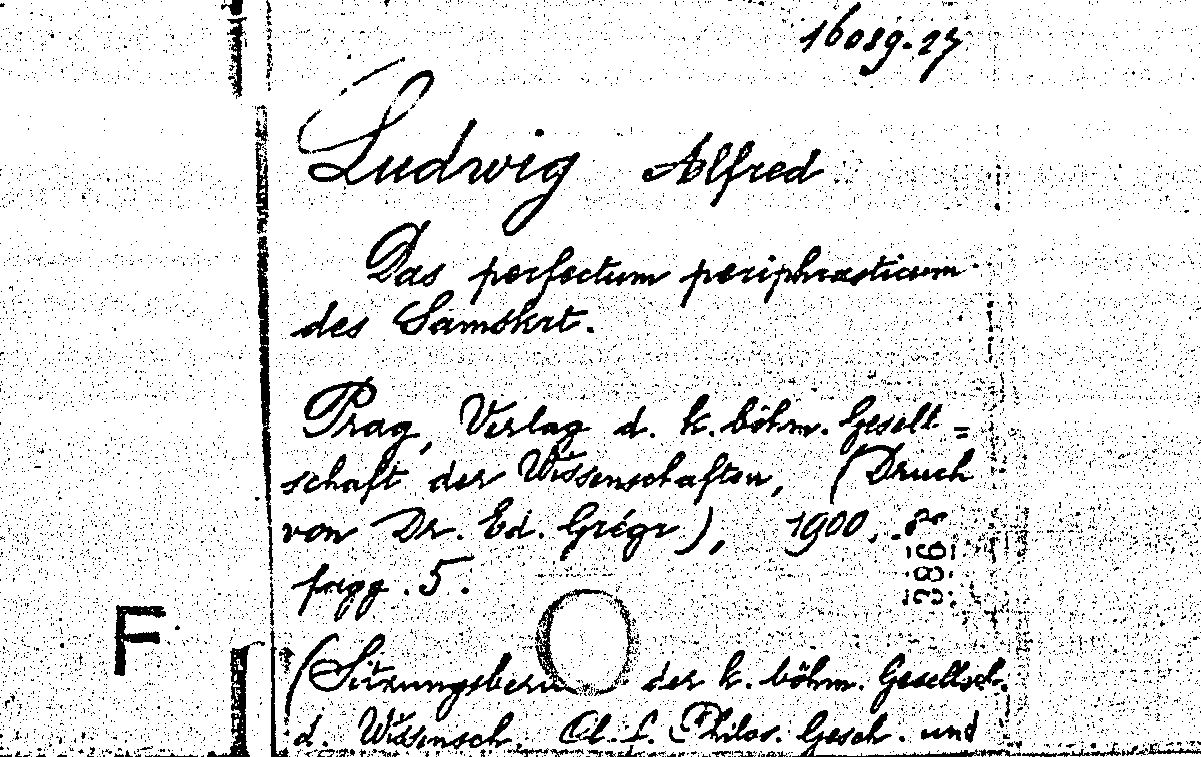 16089.27
Ludwig Alfred
Das perfectum periphrasticum
des Samskrt.
Prag, Verlag d. k. böhm. Gesell=
schaft der Wissenschaften, (Druck
von Dr. Ed. Grégr), 1900. 8º
fogg. 5.
386
F
(Sitzungsberi der k. böhm. Gesellsch.
d. Wissensch. Cl. f. Philos. Gesch. und